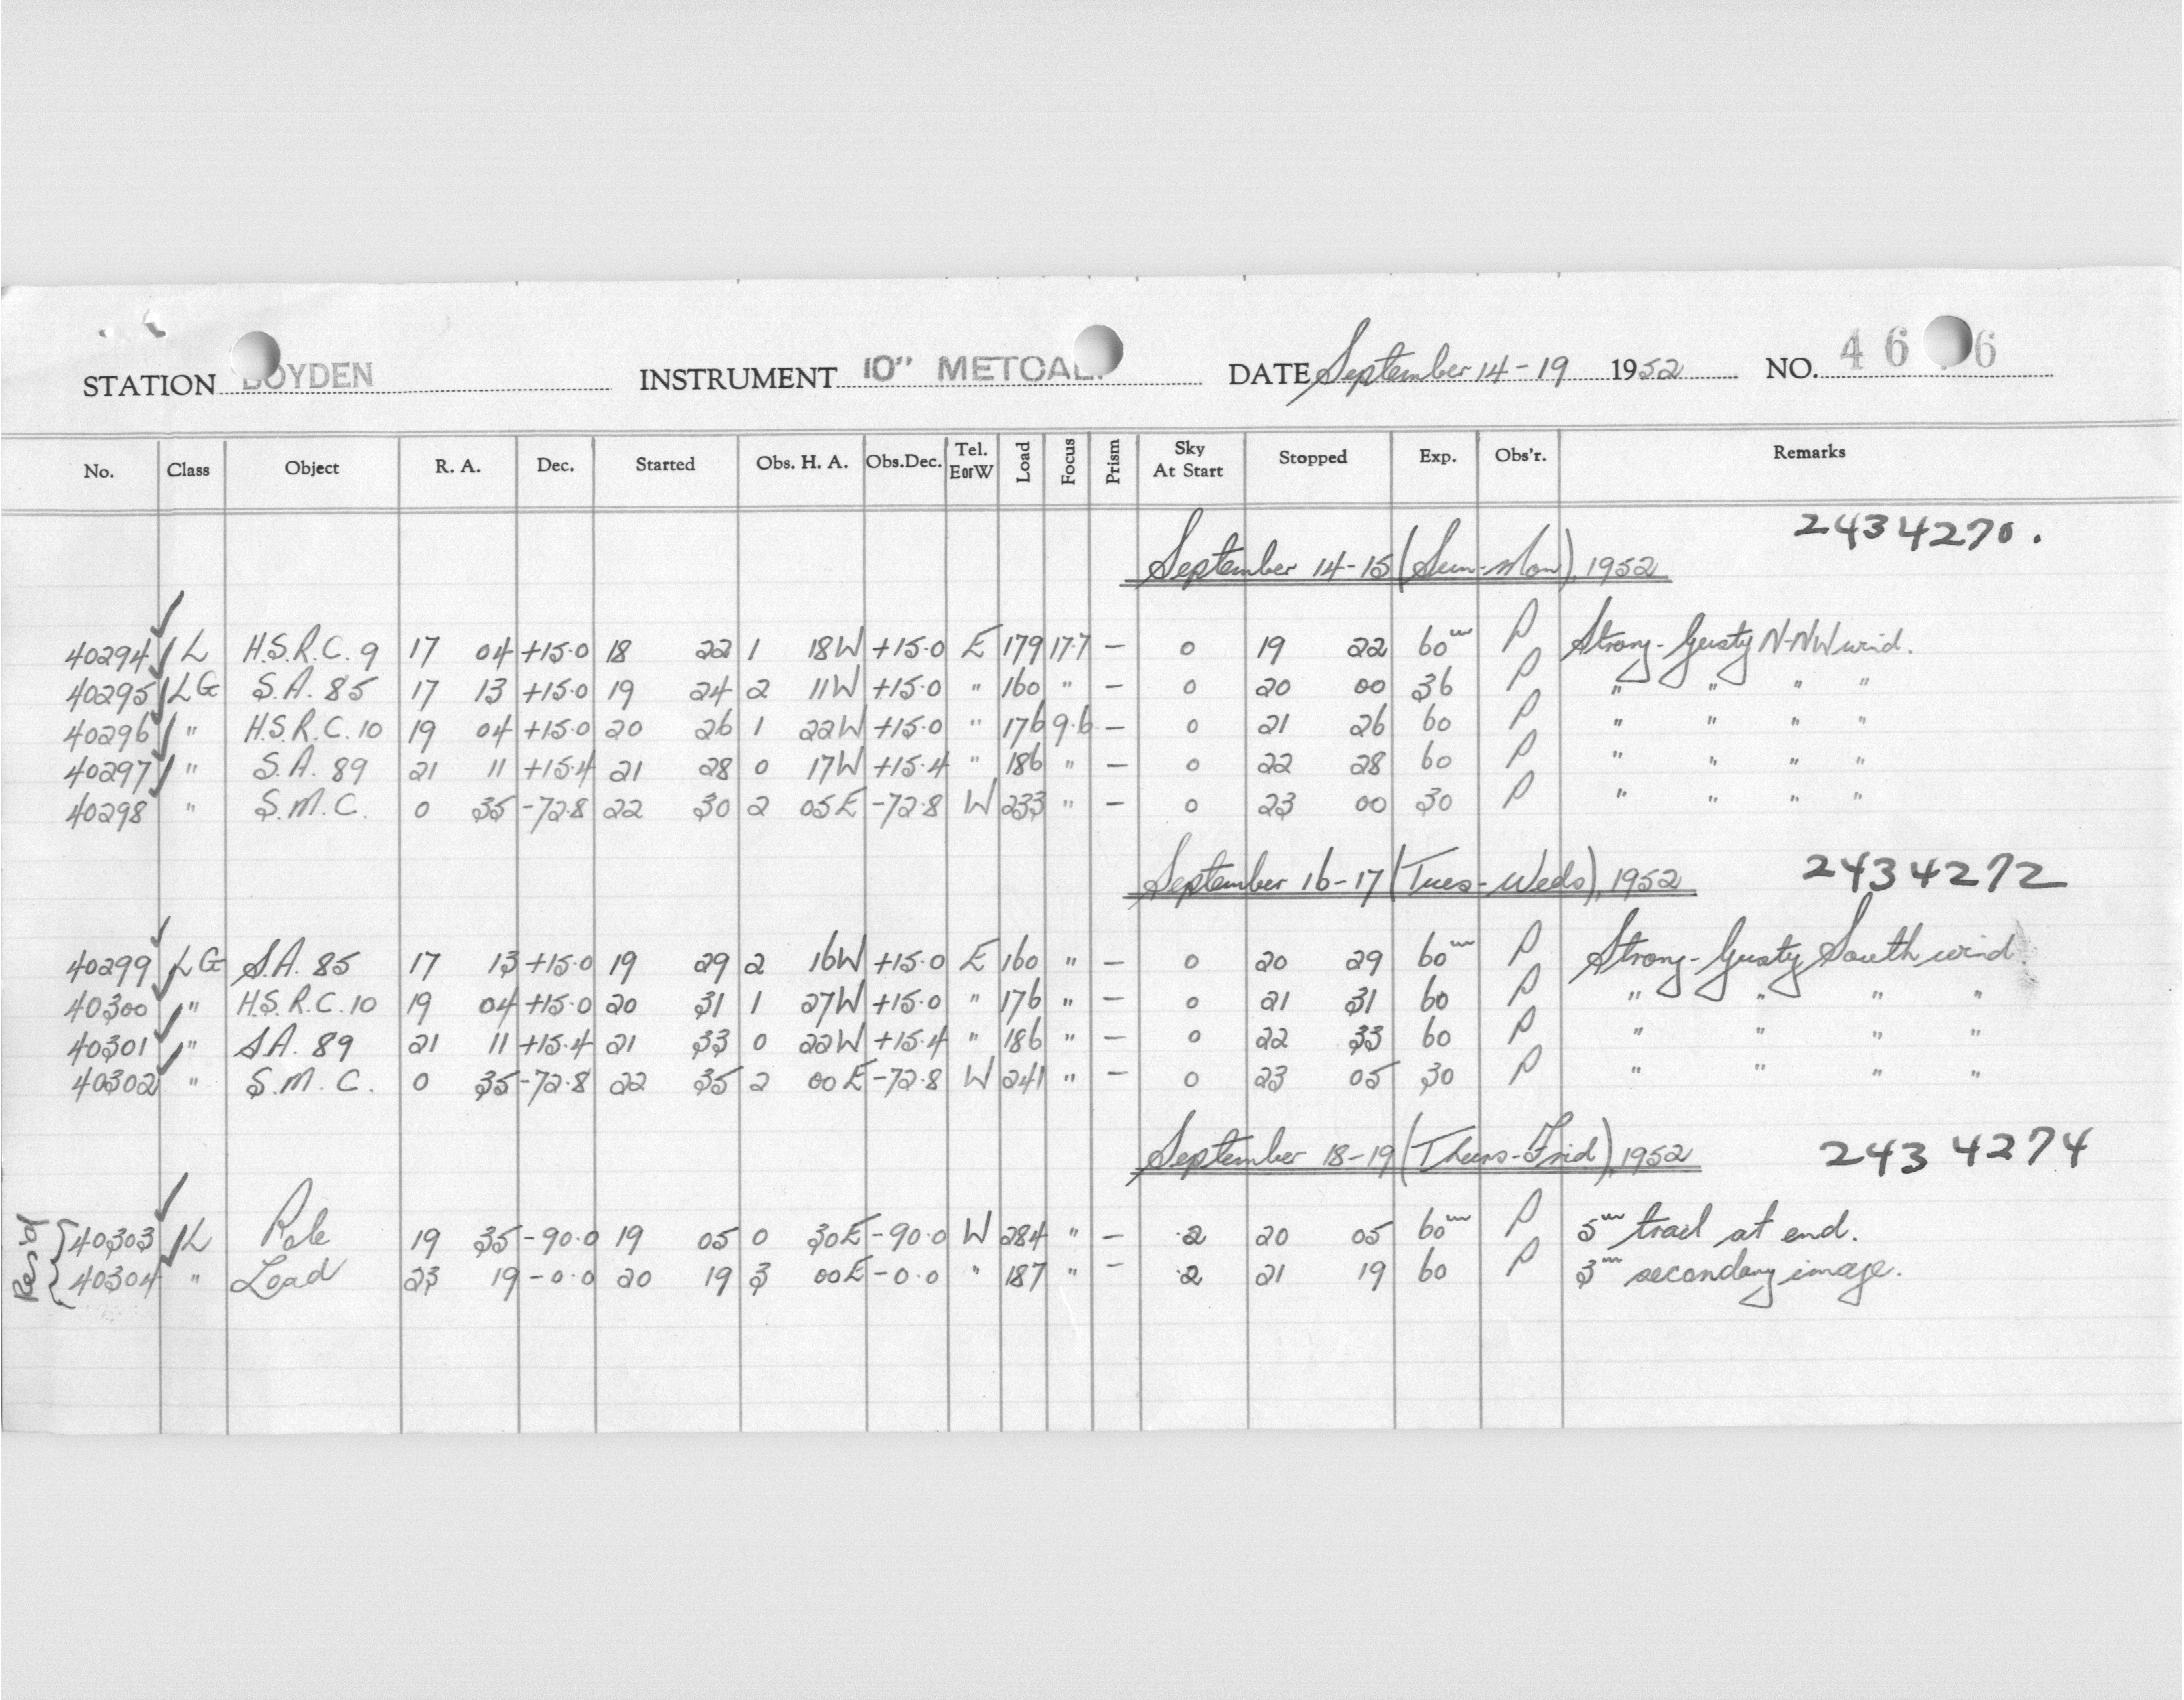 STATION BOYDEN INSTRUMENT 10" METCALF DATE September 14-19 1952 NO. 46 6
No. Class Object R. A. Dec. Started Obs. H. A. Obs.Dec. Tel. EorW Load Focus Prism Sky At Start Stopped Exp. Obs'r. Remarks
2434270.
September 14-15 (Sun-Mon), 1952
40294 L H.S.R.C. 9 17 04 +15.0 18 22 1 18W +15.0 E 179 17.7 – 0 19 22 60m P Strong-Gusty N-NW wind.
40295 LG S.A. 85 17 13 +15.0 19 24 2 11W +15.0 " 160 " – 0 20 00 36 P " " " "
40296 " H.S.R.C. 10 19 04 +15.0 20 26 1 22W +15.0 " 176 9.6 – 0 21 26 60 P " " " "
40297 " S.A. 89 21 11 +15.4 21 28 0 17W +15.4 " 186 " – 0 22 28 60 P " " " "
40298 " S.M.C. 0 35 -72.8 22 30 2 05E -72.8 W 233 " – 0 23 00 30 P " " " "
September 16-17 (Tues-Weds), 1952 2434272
40299 LG S.A. 85 17 13 +15.0 19 29 2 16W +15.0 E 160 " – 0 20 29 60m P Strong-Gusty South wind.
40300 " H.S.R.C. 10 19 04 +15.0 20 31 1 27W +15.0 " 176 " – 0 21 31 60 P " " " "
40301 " S.A. 89 21 11 +15.4 21 33 0 22W +15.4 " 186 " – 0 22 33 60 P " " " "
40302 " S.M.C. 0 35 -72.8 22 35 2 00E -72.8 W 241 " – 0 23 05 30 P " " " "
September 18-19 (Thurs-Frid), 1952 2434274
40303 L Pole 19 35 -90.0 19 05 0 30E -90.0 W 284 " – 2 20 05 60m P 5m trail at end.
40304 " Load 23 19 -0.0 20 19 3 00E -0.0 " 187 " – 2 21 19 60 P 3m secondary image.